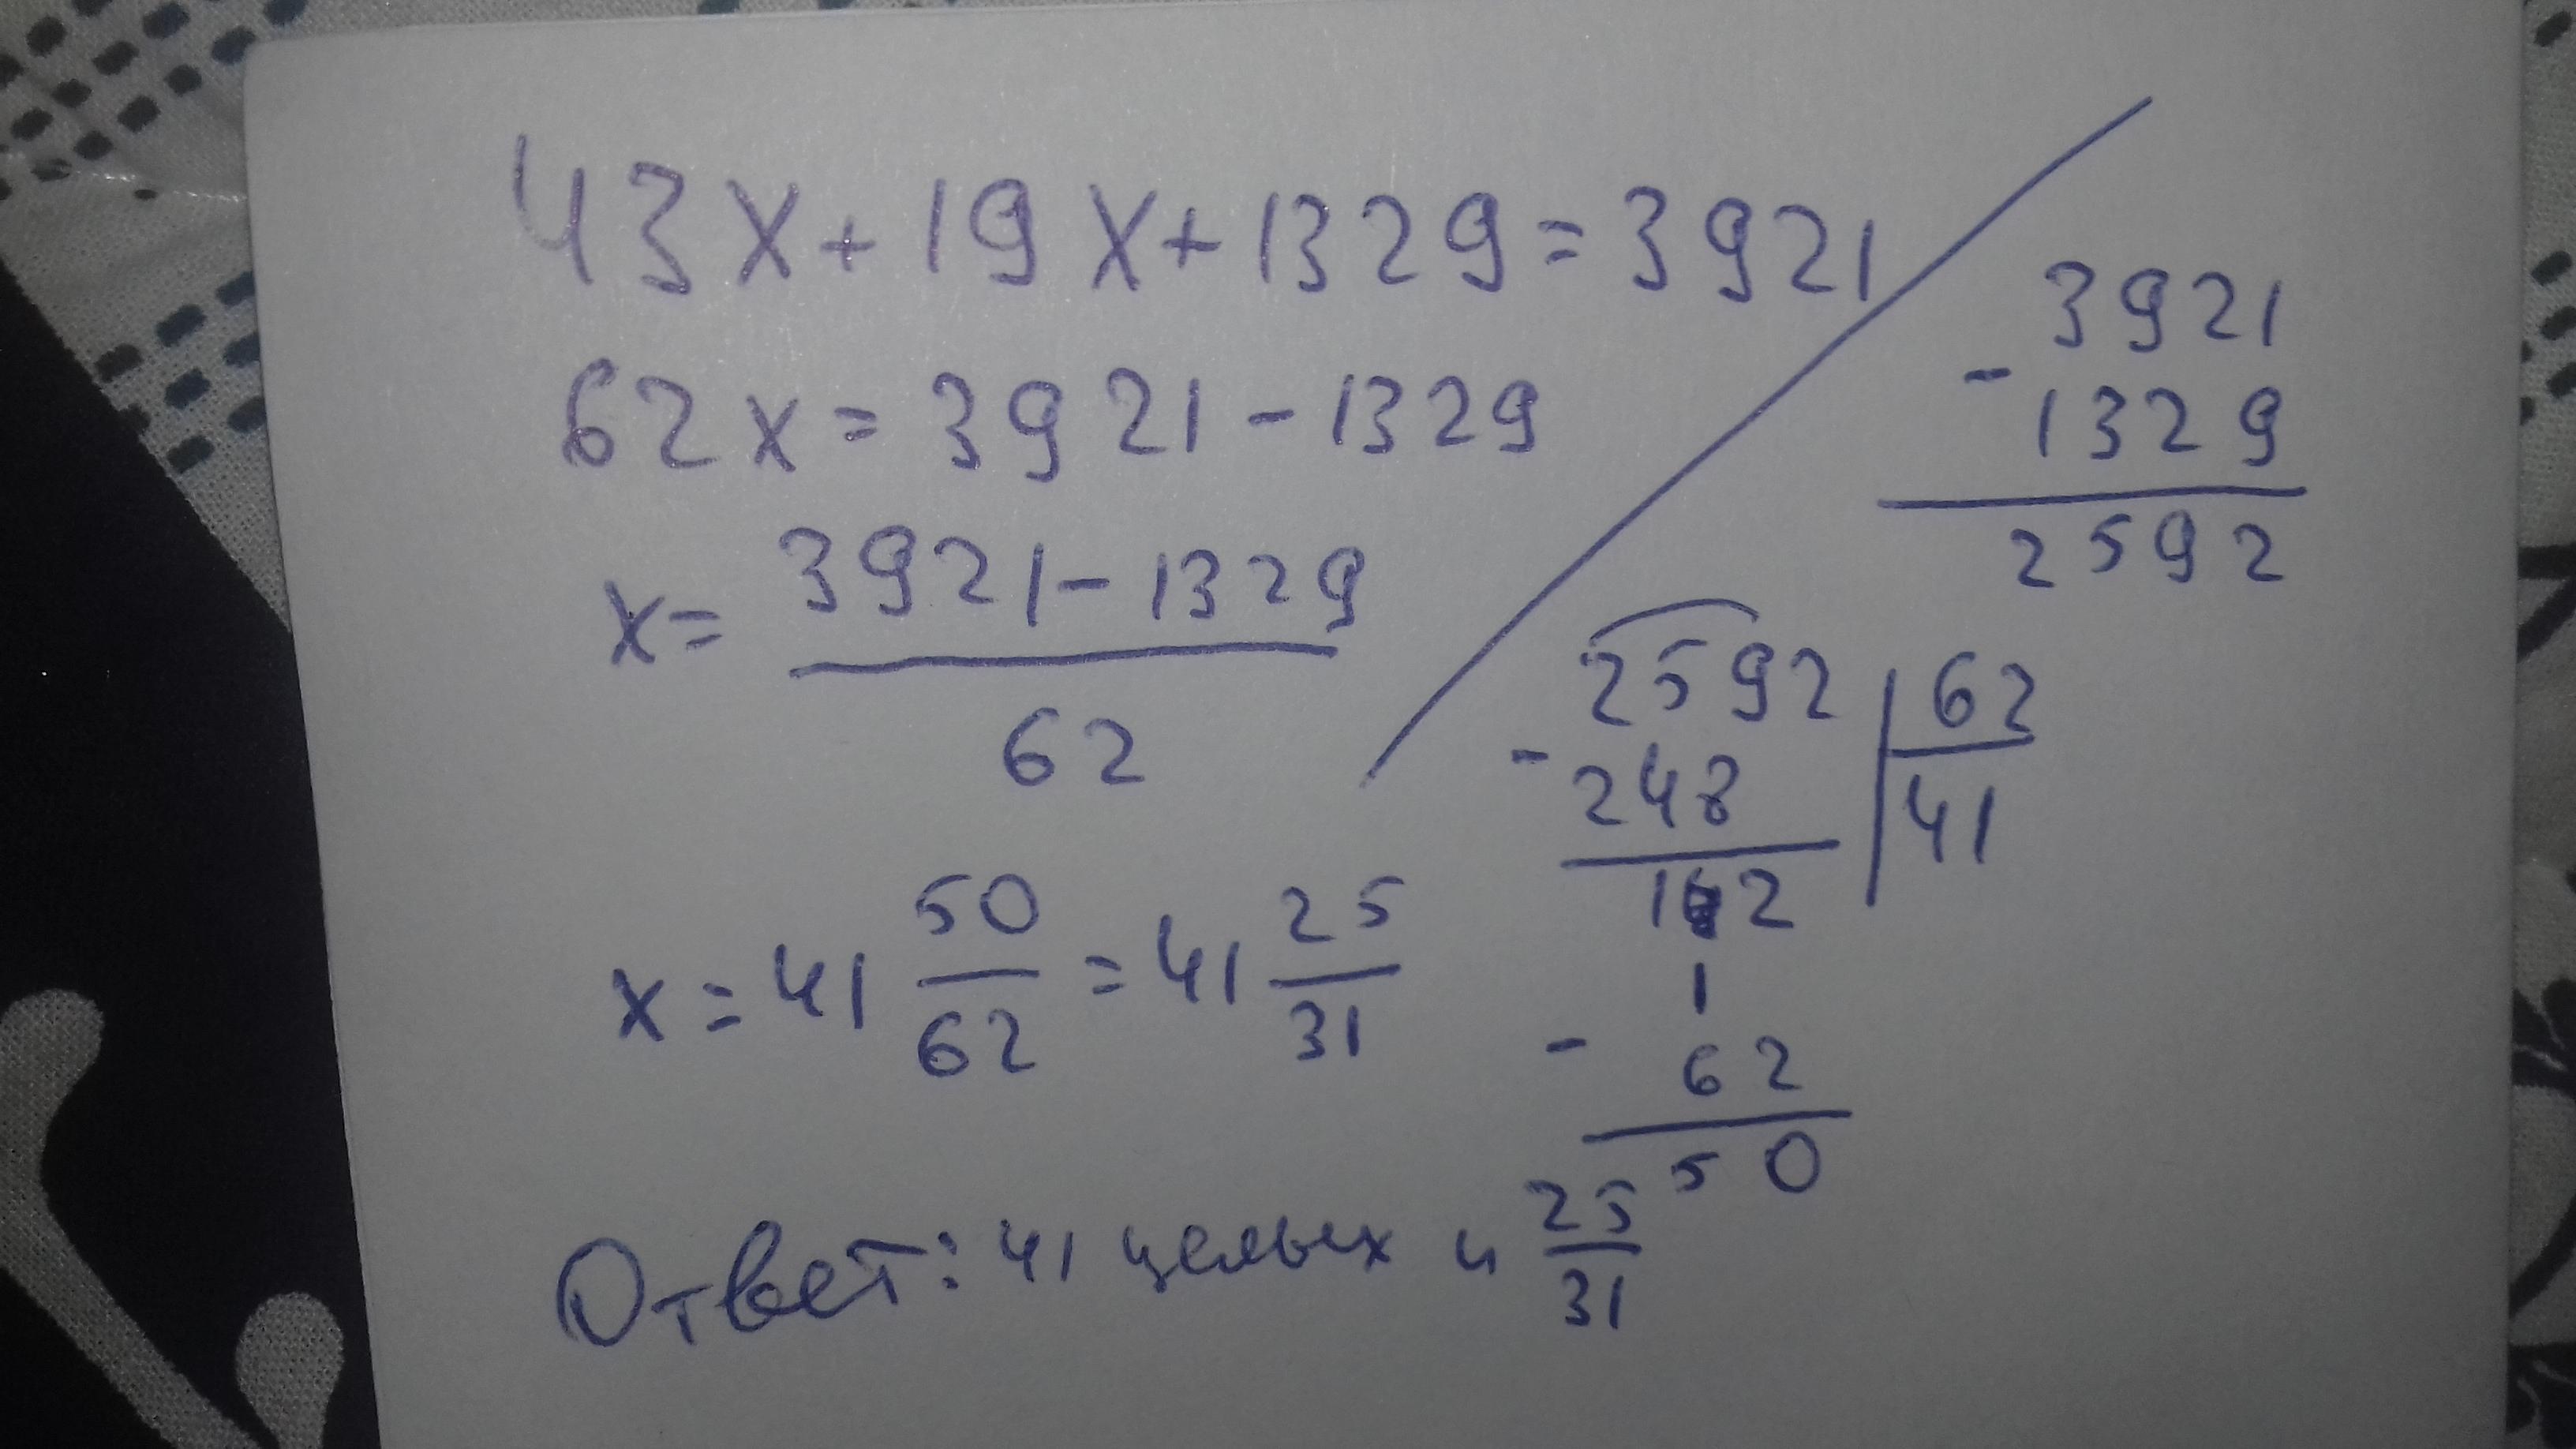 43x+19x+1329=3921
62x=3921-1329
x= 3921-1329
62
x=41 50/62 = 41 25/31
3921
- 1329
2592
2592 | 62
- 248 | 41
112
1
- 62
50
Ответ: 41 целых и 25/31